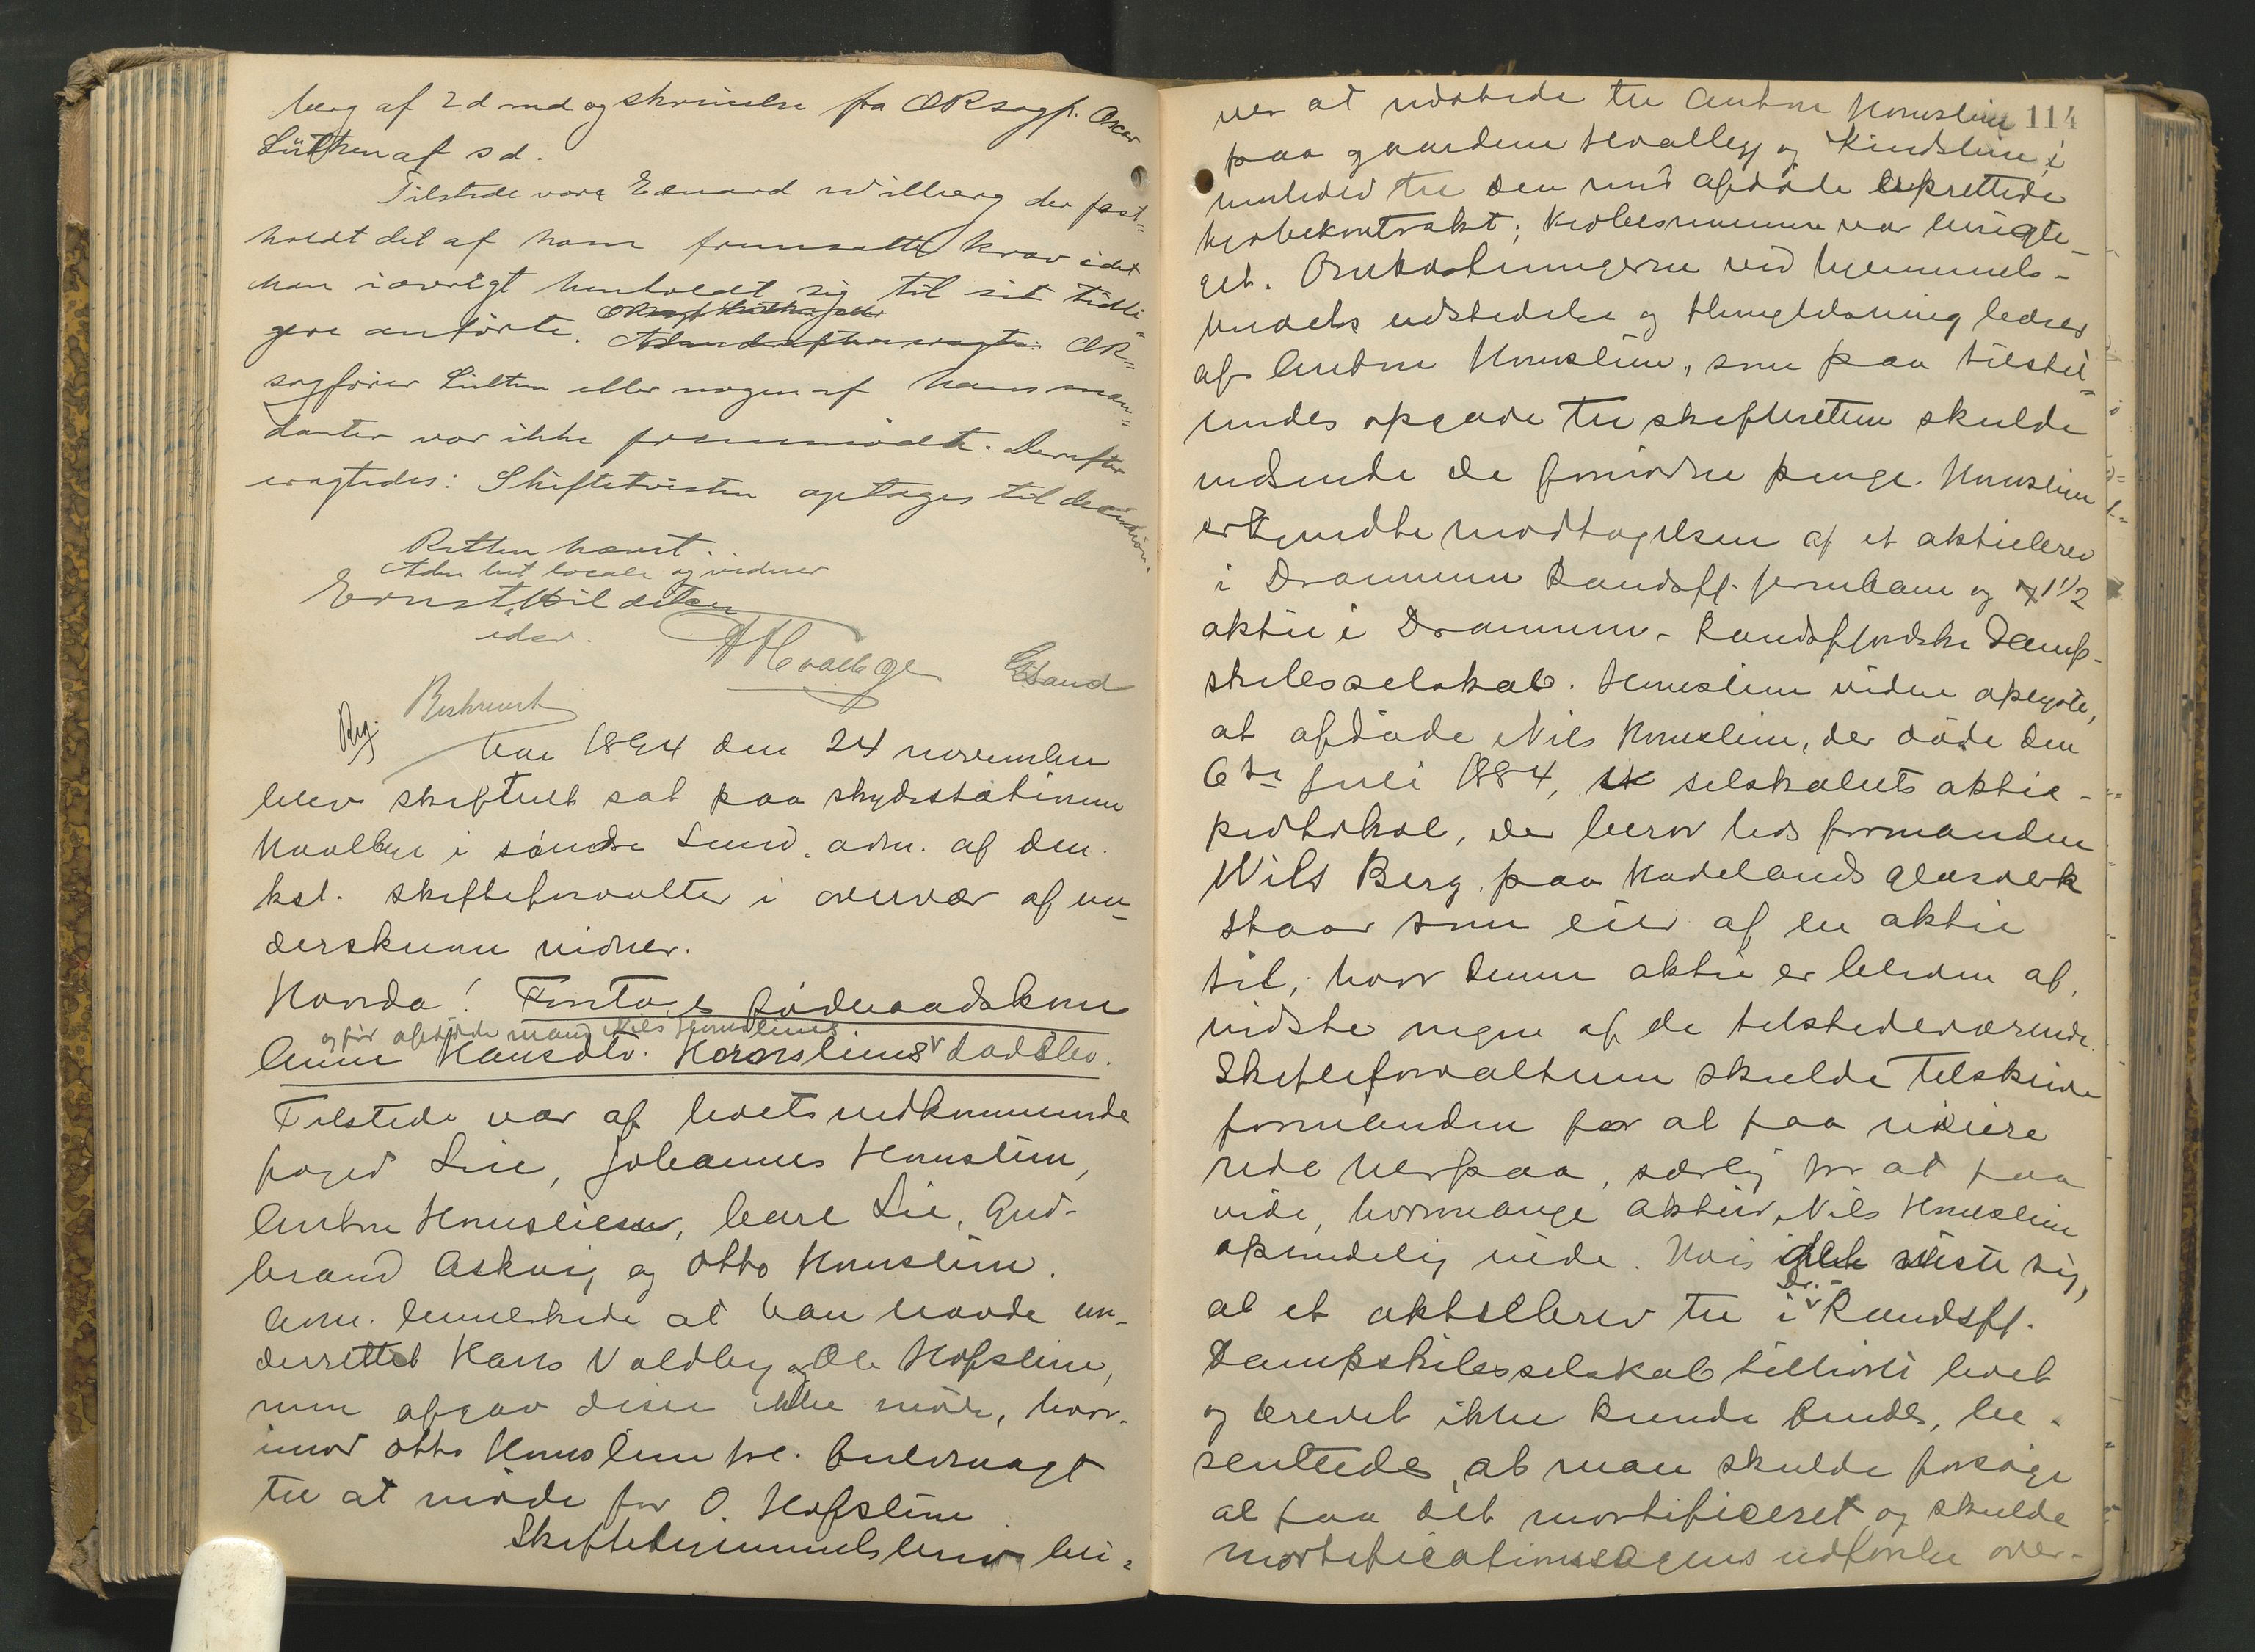 berg af 2d md og skrivelse fra ORsagf. Oscar
Lütken af s d.
Tilstede vare Eduard Wilberg der fast-
holdt det af ham fremsatte krav idet
han iøvrigt henholdt sig til sit tidli-
gere anførte. OR-
sagfører Lütken eller nogen af hans man-
danter var ikke fremmødt. Derefter
eragtedes: Skiftetvisten optages til decission.
Retten hævet.
Adm test locale og vidner
Ernst Hilditsen
edsv. HHvalbye ESand
Beskrevet
Reg.
Aar 1894 den 24 november
blev skifteret sat paa skydsstationen
Hvalbye i søndre Lund, adm. af den
kst. skifteforvalter i overvær af un-
derskrevne vidner.
Hvorda! Foretoges føderaadskone
og før afdøde mand Nils Hornsliens
Anne Hansdtr. Hornsliens dødsbo.
Tilstede var af boets vedkommende
foged Lie, Johannes Hornslien,
Anton Hornslien, Carl Lie, Gud-
brand Askvig og Otto Hornslien.
Adm. bemerkede at han havde un-
derrettet Hans Valdby og Ole Hofslien,
men afgav disse ikke møde, hvor-
imod Otto Hornslien frl. fuldmagt
til at møde for O. Hofslien
Skiftehjemmelsbrev bli-
114
ver at udstede til Anton Hornslien
paa gaardene Hvalbye og Kindslien i
henhold til den med afdøde oprettede
kjøbekontrakt; kjøbesummen var berigti-
get. Omkostningerne ved hjemmels-
brevets udstedelse og thinglæsning bæres
af Anton Hornslien, som paa tilstel-
lendes opgave til skifteretten skulde
indsende de fornødne penge. Hornslien
erkjendte modtagelsen af et aktiebrev
i Drammen Randsfj. jernbane og 1 1/2
aktie i Drammen-Randsfjordske Damp-
skibsselskab. Hornslien videre oplyste,
at afdøde Nils Hornslien, der døde den
6te Juli 1884, selskabets aktie-
protokol, der beror hos formanden
Nils Berg paa Hadelands glasverk
staar som eier af en aktie
til; hvor denne aktie er bleven af,
vidste ingen af de tilstedeværende.
Skifteforvalteren skulde tilskrive
formanden for at faa nøiere
rede herpaa, særlig for at faa
vide, hvormange aktier Nils Hornslien
oprindelig eiede. Hvis det viste sig,
at et aktiebrev til i Dr.- Randsfj.
Dampskibsselskab tilhørte boet
og brevet ikke kunde findes, be-
sluttedes, at man skulde forsøge
at faa det mortificeret og skulde
mortificationssagens udførelse over-